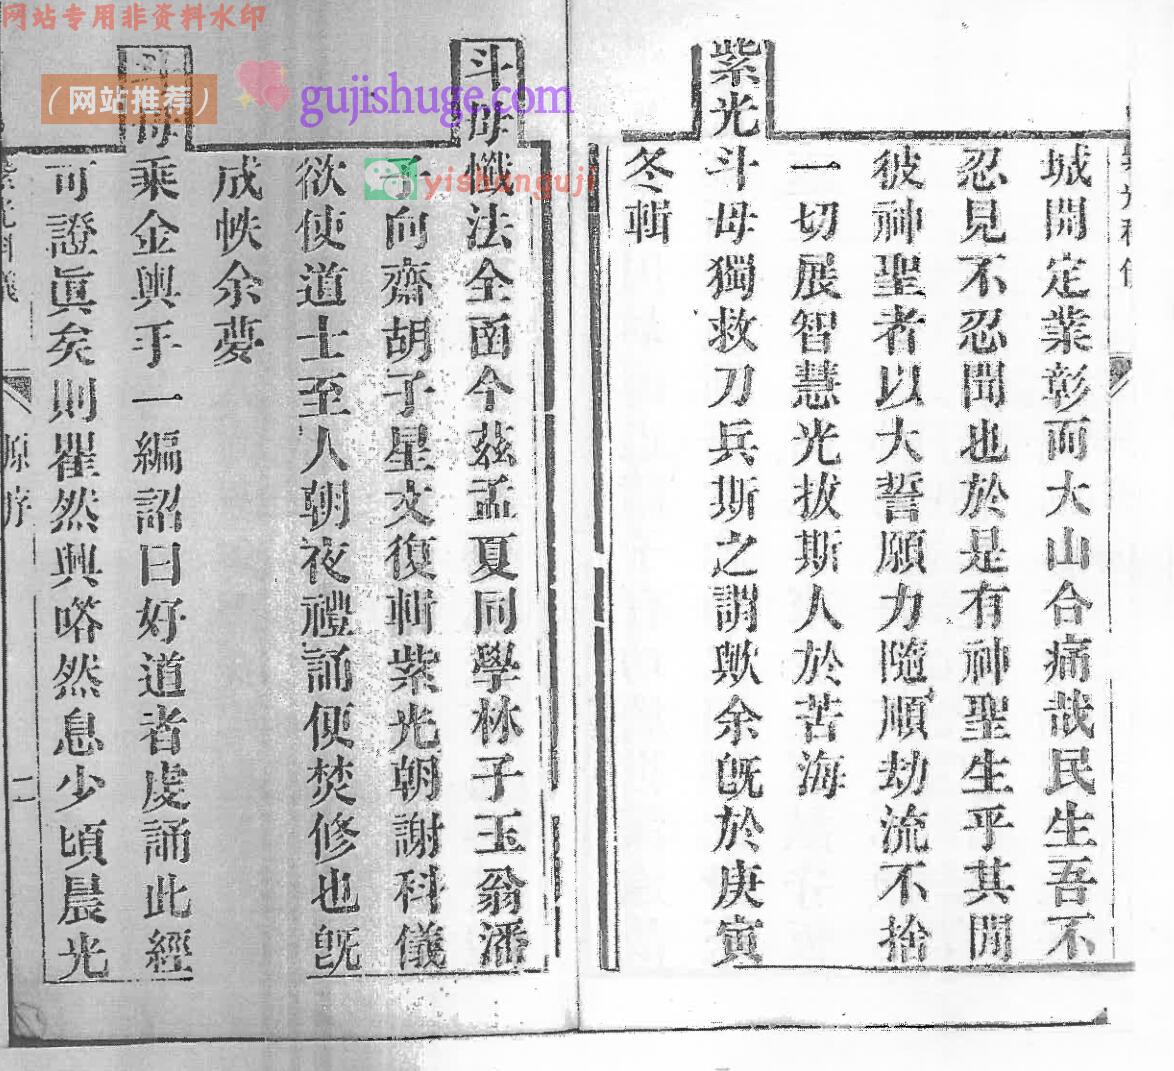 网站专用非资料水印
城開定業彰而大山合痛哉民生吾不
忍見不忍聞也於是有神聖生乎其間
彼神聖者以大誓願力隨順劫流不捨
一切展智慧光拔斯人於苦海
紫光
斗母獨救刀兵斯之謂歟余旣於庚寅
冬輯
斗母懺法全函今茲孟夏同學林子玉翁潘
子向齋胡子星文復輯紫光朝謝科儀
欲使道士至人朝夜禮誦便焚修也旣
成帙余夢
斗母乘金輿手一編詔曰好道者虔誦此經
可證眞矣則瞿然興嗒然息少頃晨光
紫光科儀
原序
二
(网站推荐)
gujishuge.com
yishanguji